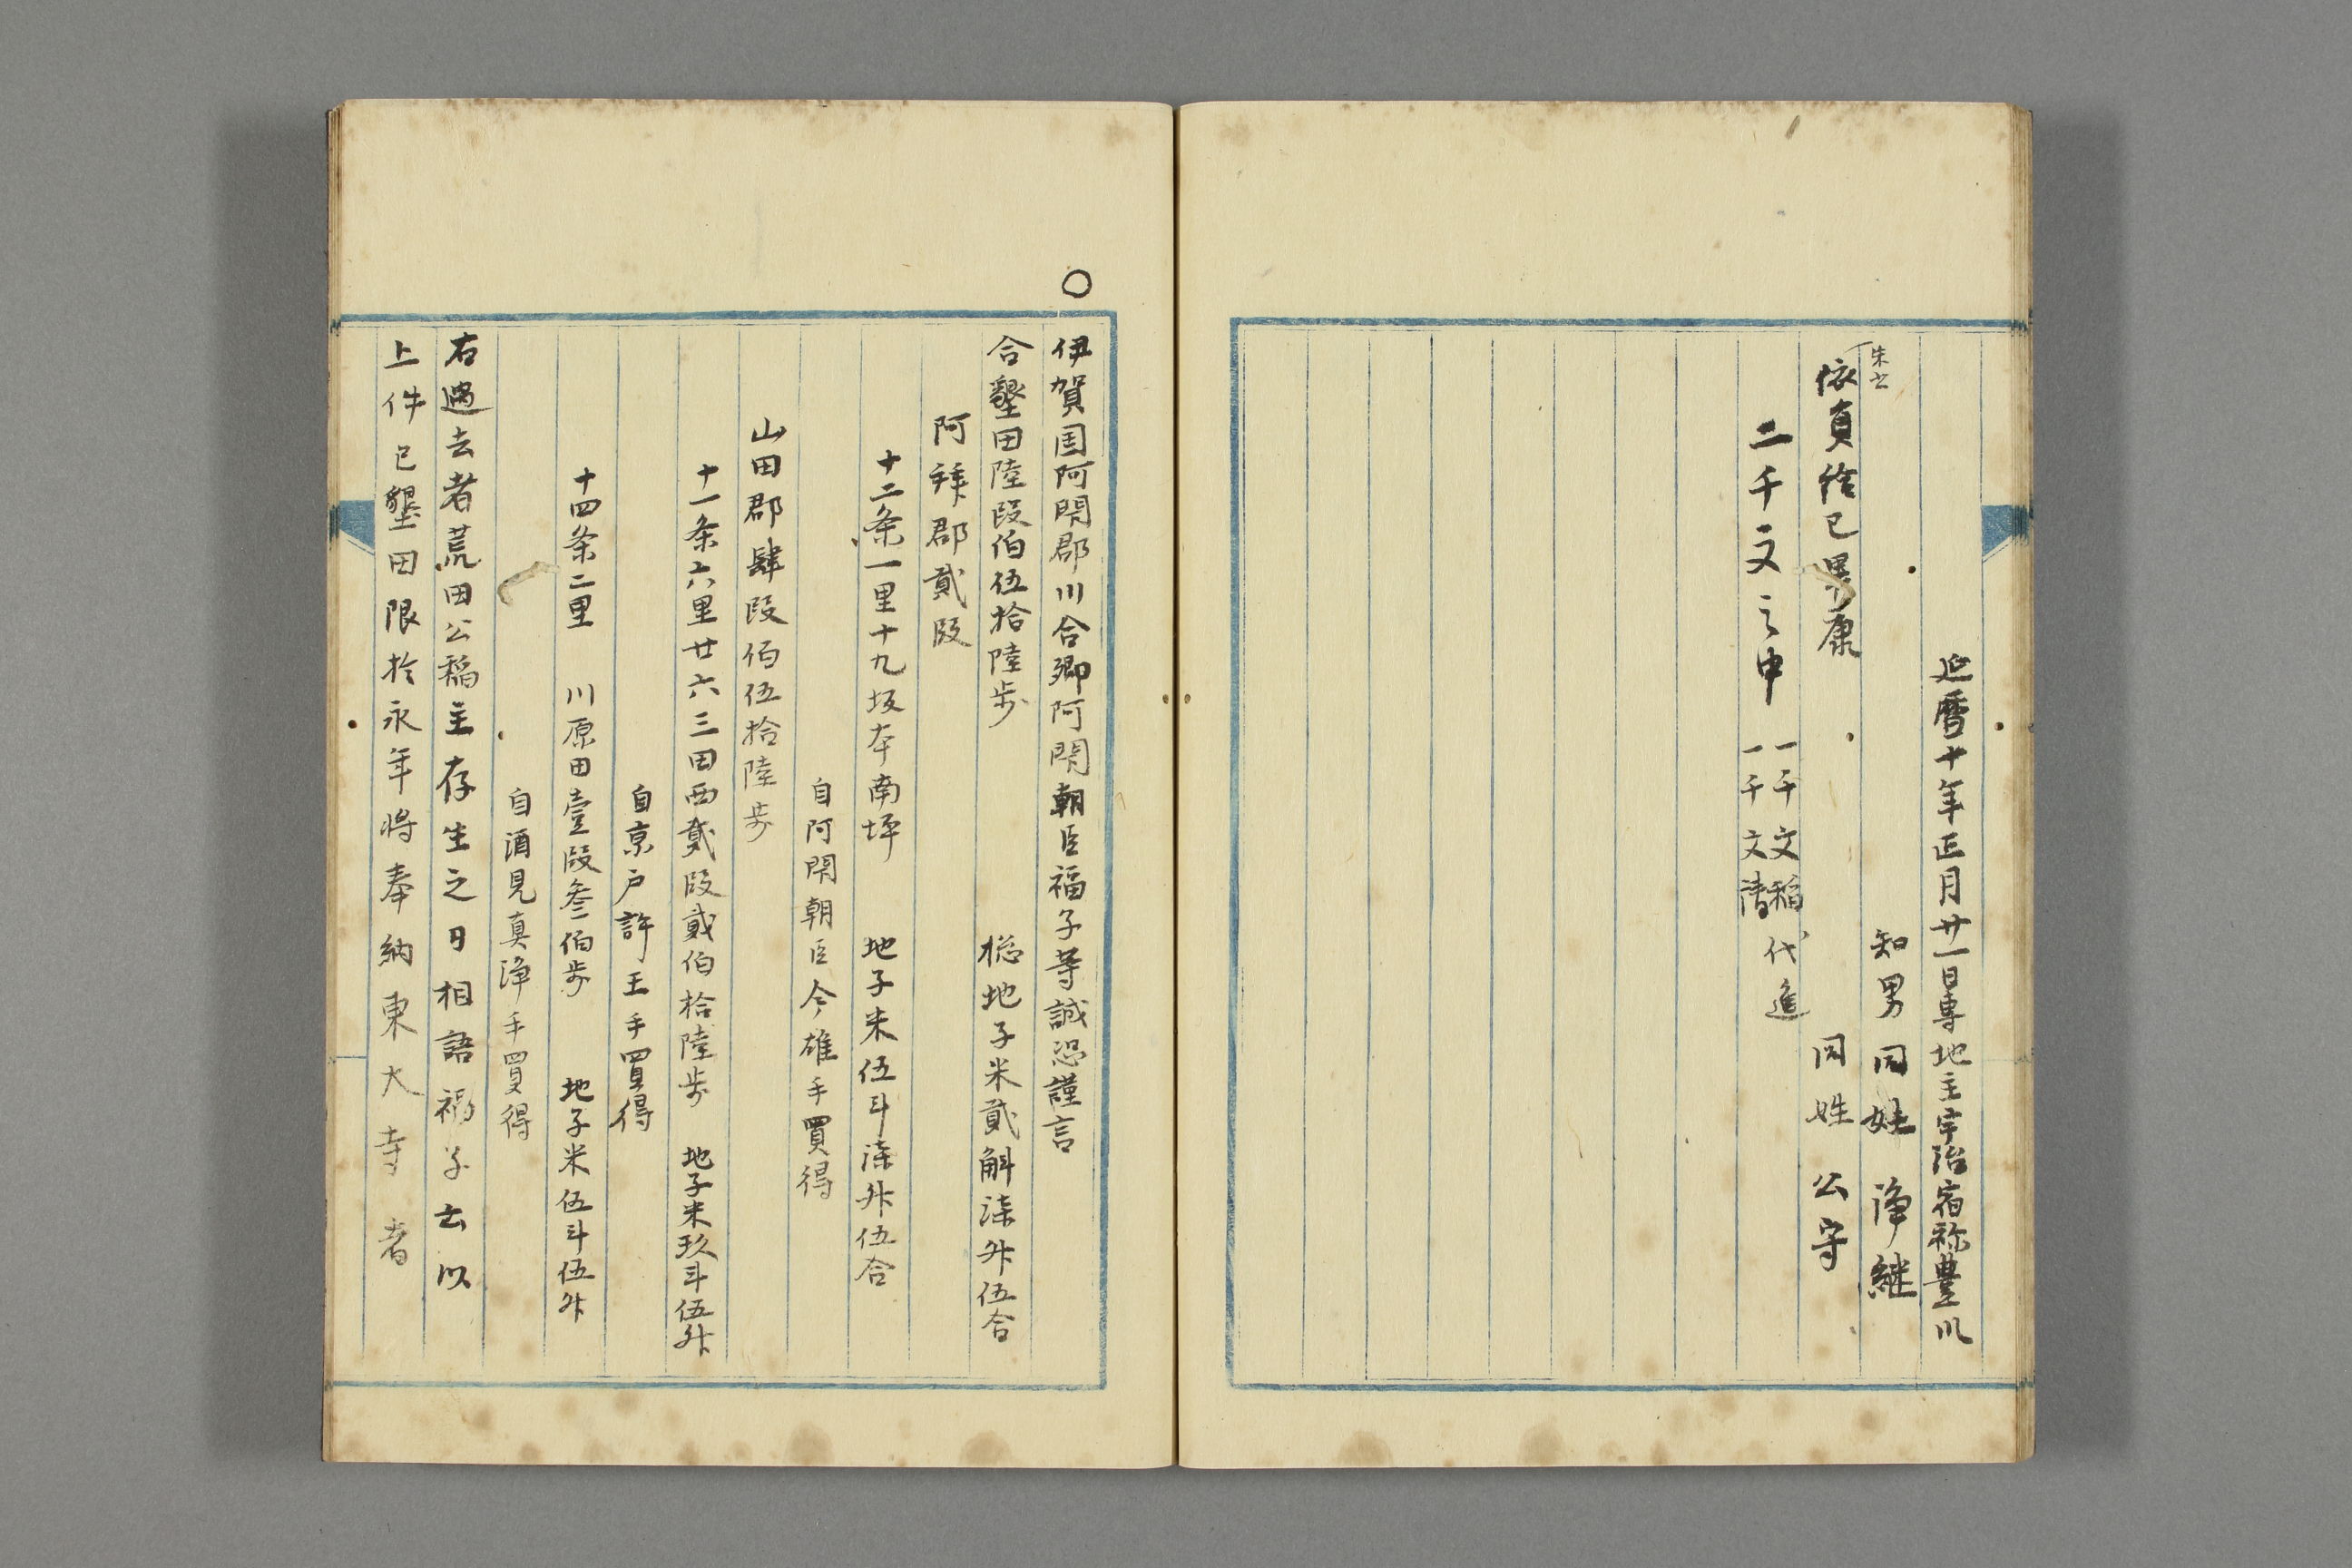 延暦十年正月廿一日専地主宇治宿祢豊川
知男同姓浄継
同姓公守
朱書
依員給已畢康
二千文之申
一千文稲代進
一千文請
〇
伊賀国阿閇郡川合郷阿閇朝臣福子等誠恐謹言
合墾田陸段伯伍拾陸歩 惣地子米貳斛漆舛伍合
阿拜郡貳段
十二条一里十九坂本南坪 地子米伍斗漆舛伍合
自阿閇朝臣今雄手買得
山田郡肆段佰伍拾陸歩
十一条六里廿六三田西貳段貳伯拾陸歩 地子米玖斗伍舛
自京戸許王手買得
十四条二里 川原田壹段叄伯歩 地子米伍斗伍舛
自酒見真浄手買得
右過去者荒田公稲主存生之日相語福子云以
上件已墾田限於永年将奉納東大寺者